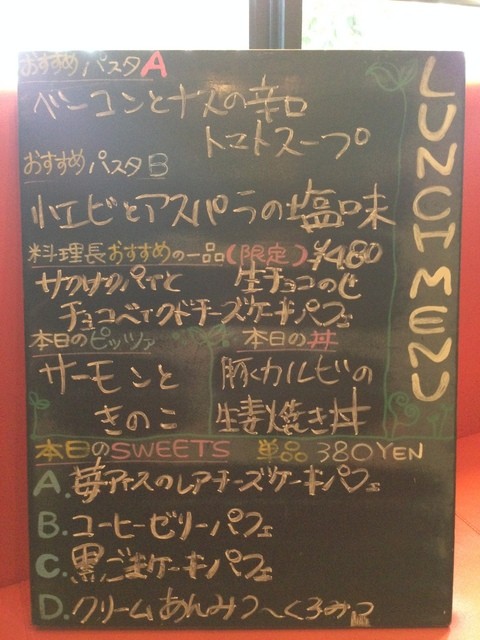 おすすめパスタA
ベーコンとナスの辛口
トマトスープ
おすすめパスタB
小エビとアスパラの塩味
料理長おすすめの一品(限定) ¥480
サクサクパイと 生チョコのせ
チョコベイクドチーズケーキパフェ
本日のピッツァ
サーモンと
きのこ
本日の丼
豚カルビの
生姜焼き丼
本日のSWEETS 単品 380YEN
A.苺アイスのレアチーズケーキパフェ
B.コーヒーゼリーパフェ
C.黒ごまケーキパフェ
D.クリームあんみつ〜くろみつ
LUNCH MENU